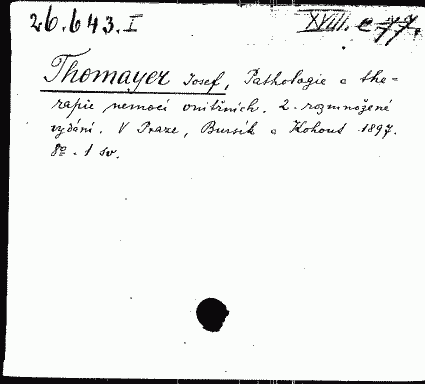 26.643.I XVIII. e 77.
Thomayer Josef, Pathologie a the-
rapie nemocí vnitřních. 2. rozmnožené
vydání. V Praze, Bursík a Kohout 1897.
8º. 1 sv.